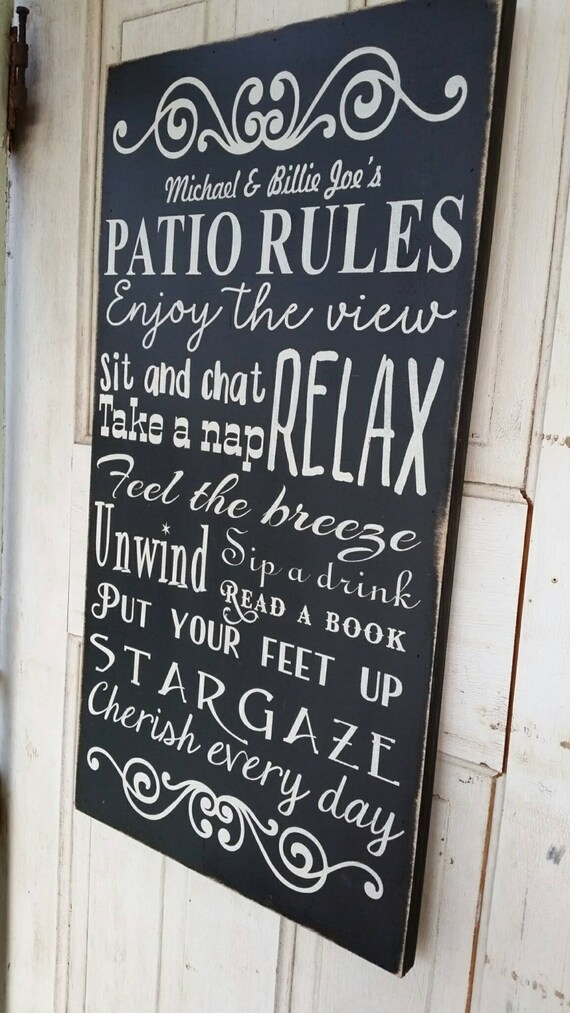 Michael & Billie Joe's
PATIO RULES
Enjoy the view
Sit and chat
Take a nap
RELAX
Feel the breeze
Unwind
Sip a drink
READ A BOOK
PUT YOUR FEET UP
STARGAZE
Cherish every day